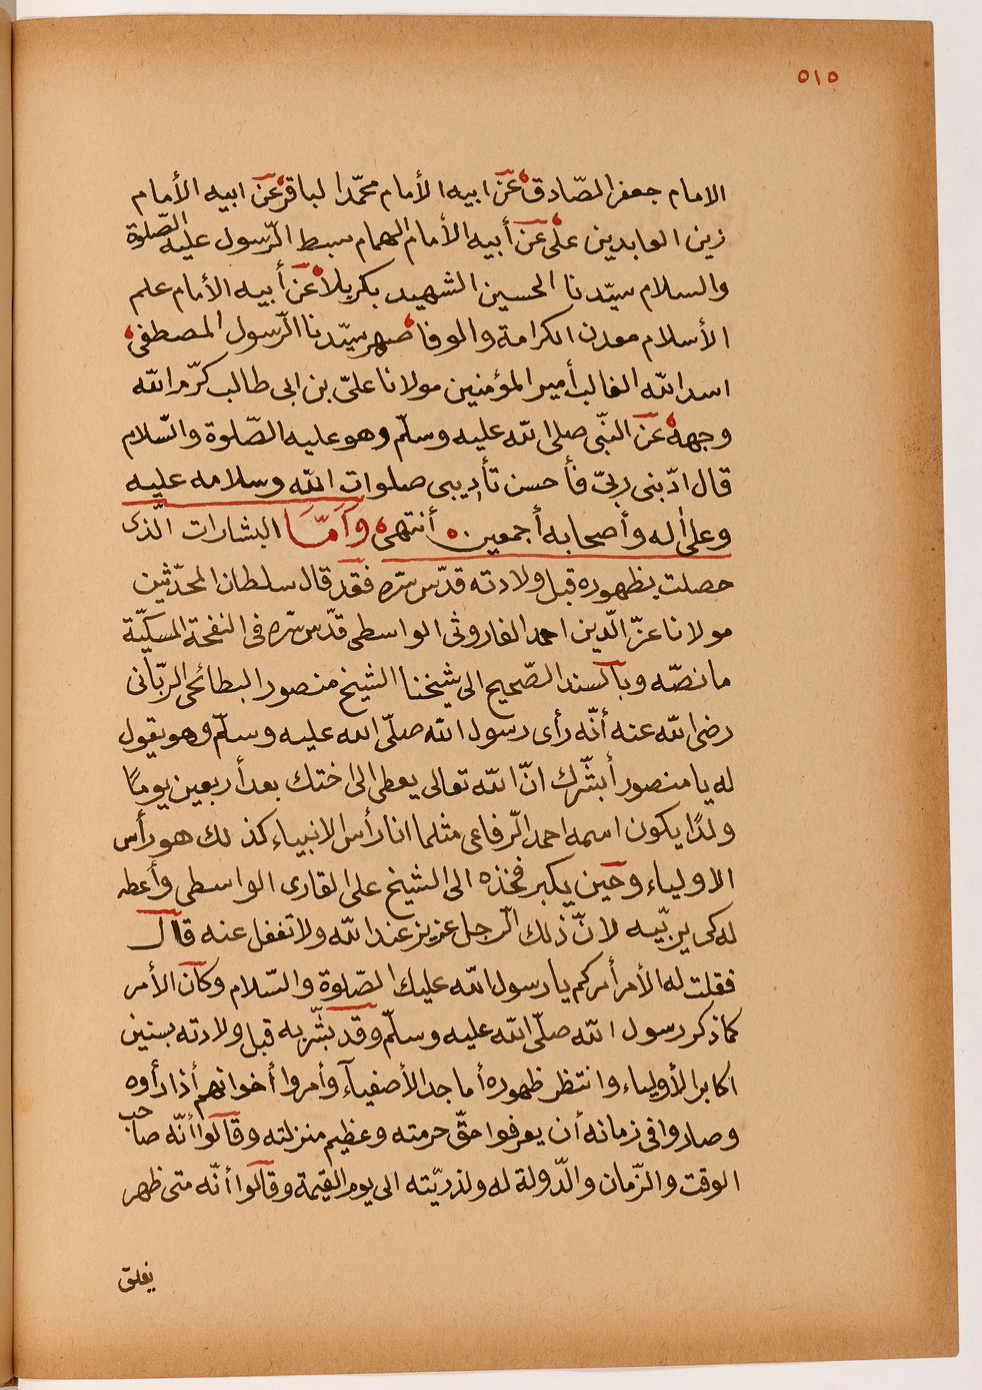 ٥١٥
الامام جعفر الصّادق عن ابيه الأمام محمّد الباقر عن ابيه الأمام
زين العابدين علىّ عن أبيه الأمام الهمام سبط الرّسول عليه الصّلوة
والسلام سيّدنا الحسين الشهيد بكربلاُ عن أبيه الأمام علم
الأسلام معدن الكرامة والوفا صهر سيّدنا الرّسول المصطفى
اسد الله الغالب أمير المؤمنين مولانا علىّ بن ابى طالب كرّم الله
وجهه عن النّبى صلى الله عليه وسلّم وهو عليه الصّلوة والسّلام
قال ادّبنى ربىّ فأحسن تأديبى صلوات الله وسلامه عليه
وعلى اله وأصحابه أجمعين. أنتهى وَاَمَّا البشارات الّذى
حصلت بظهوره قبل ولادته قدّس سرّه فقد قال سلطان المحدّثين
مولانا عزّ الّدين احمد الفاروثى الواسطى قدّس سرّه فى النفحة المسكيّة
ما نصّه وبالسند الصّحيح الى شيخنا الشيخ منصور البطائحى الربّانى
رضى الله عنه أنّه رأى رسول الله صلّى الله عليه وسلّم وهو يقول
له يا منصور أبشّرك انّ الله تعالى يعطى الى اختك بعد أربعين يومًا
ولدًا يكون اسمه احمد الرّفاعى مثلما انا رأس الانبياء كذلك هو رأس
الاولياء وحين يكبر فخذه الى الشيخ على القارى الواسطى وأعطه
له كى يربّيه لانّ ذلك الرّجل عزيز عند الله ولا تغفل عنه قال
فقلت له الأمر أمركم يا رسول الله عليك الصّلوة والسّلام وكان الأمر
كما ذكر رسول الله صلّى الله عليه وسلّم وقد بشّر به قبل ولادته بسنين
اكابر الأولياء وانتظر ظهوره أماجد الأصفيآء وأمروا أخوانهم أذا رأوه
وصاروا فى زمانه أن يعرفوا حقّ حرمته وعظيم منزلته وقالوا أنّه صاحب
الوقت والزّمان والدّولة له ولذريّته الى يوم القيمة وقالوا أنّه متى ظهر
يغلق